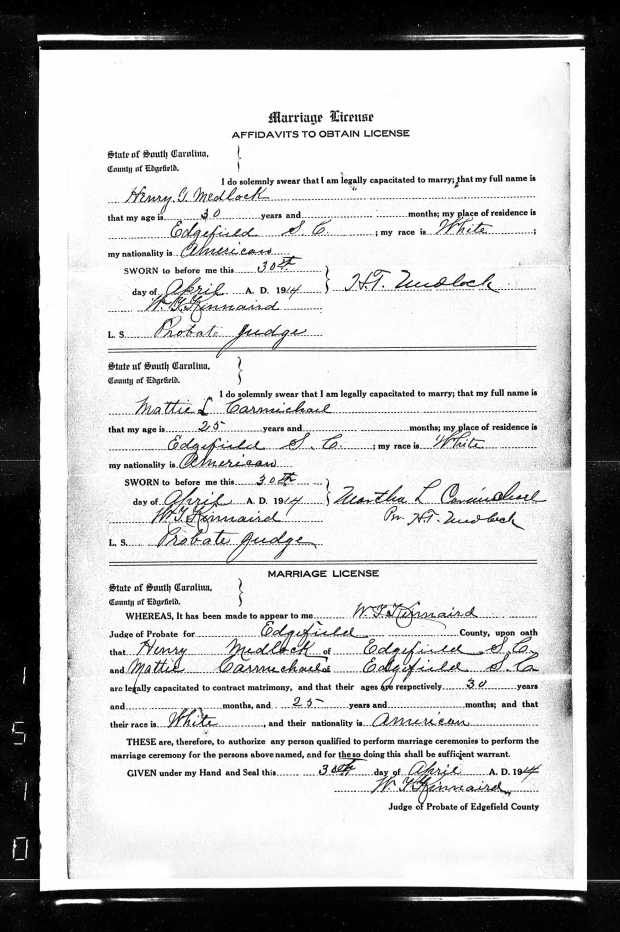 Marriage License
AFFIDAVITS TO OBTAIN LICENSE
State of South Carolina,
County of Edgefield.
I do solemnly swear that I am legally capacitated to marry; that my full name is
Henry T. Medlock
that my age is 30 years and months; my place of residence is
Edgefield S. C. ; my race is White ;
my nationality is American
SWORN to before me this 30th
day of April A. D. 1914 H.T. Medlock
W. T. Kinnaird
L. S. Probate Judge
State of South Carolina,
County of Edgefield.
I do solemnly swear that I am legally capacitated to marry; that my full name is
Mattie L Carmichael
that my age is 25 years and months; my place of residence is
Edgefield S. C. ; my race is White
my nationality is American
SWORN to before me this 30th
day of April A. D. 1914 Martha L Carmichael
W. T. Kinnaird Per H.T. Medlock
L. S. Probate Judge
MARRIAGE LICENSE
State of South Carolina,
County of Edgefield.
WHEREAS, It has been made to appear to me W. T. Kinnaird
Judge of Probate for Edgefield County, upon oath
that Henry Medlock of Edgefield S. C.
and Mattie Carmichael of Edgefield S. C
are legally capacitated to contract matrimony, and that their ages are respectively 30 years
and months, and 25 years and months; and that
their race is White , and their nationality is American
THESE are, therefore, to authorize any person qualified to perform marriage ceremonies to perform the
marriage ceremony for the persons above named, and for the so doing this shall be sufficient warrant.
GIVEN under my Hand and Seal this 30th day of April A. D. 1914
W. T. Kinnaird
Judge of Probate of Edgefield County